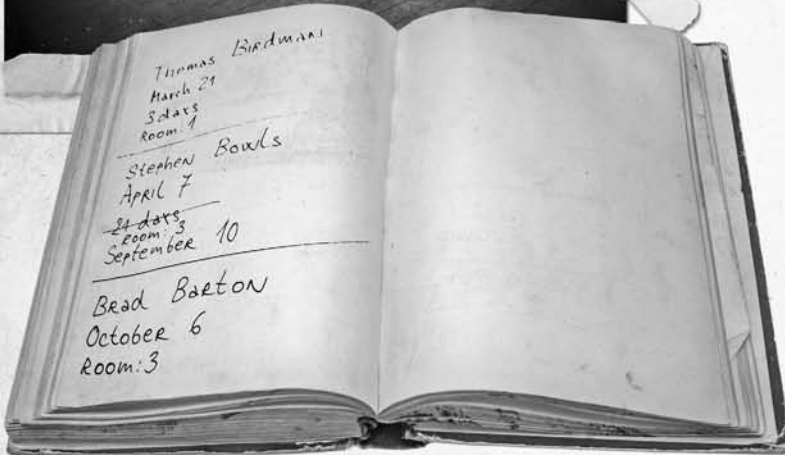 Thomas Birdman
March 21
3 days
Room: 1
Stephen Bowls
April 7
21 days
Room: 3
September 10
Brad Barton
October 6
Room: 3